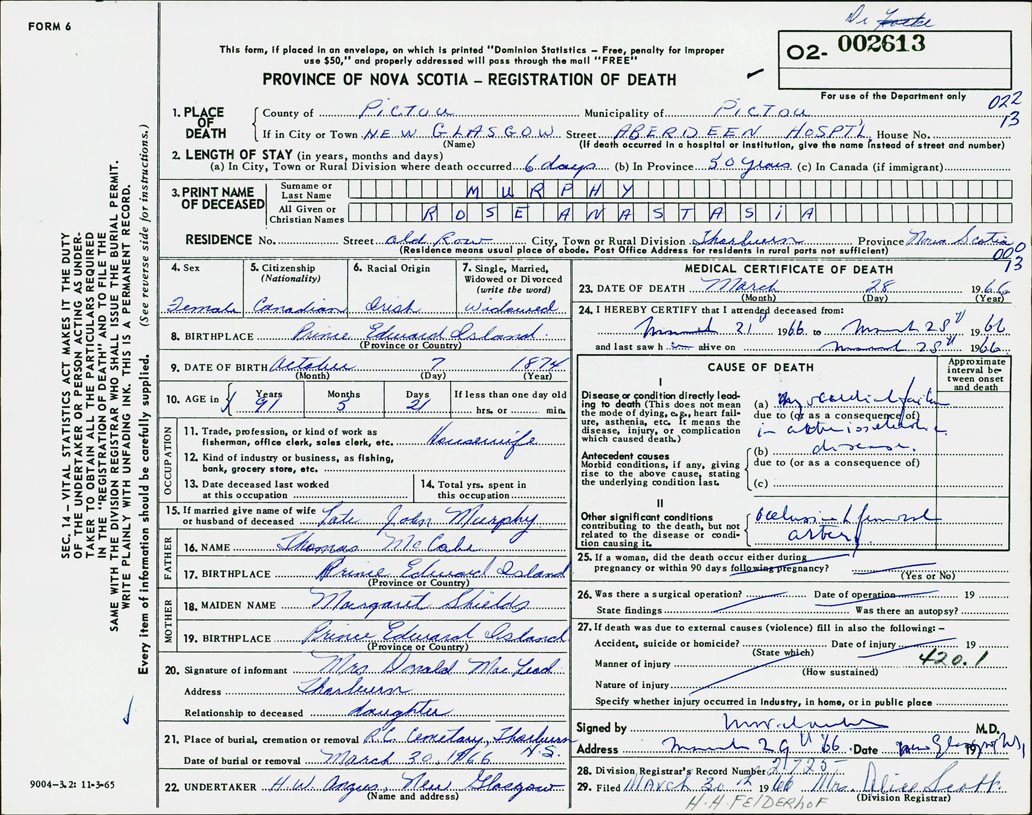 FORM 6
Dr
This form, if placed in an envelope, on which is printed "Dominion Statistics – Free, penalty for improper
use $50," and properly addressed will pass through the mail "FREE"
02- 002613
PROVINCE OF NOVA SCOTIA – REGISTRATION OF DEATH
For use of the Department only
022
13
1. PLACE OF DEATH
County of PICTOU Municipality of PICTOU
If in City or Town NEW GLASGOW Street ABERDEEN HOSPTL House No.
(Name) (If death occurred in a hospital or institution, give the name instead of street and number)
2. LENGTH OF STAY (in years, months and days)
(a) In City, Town or Rural Division where death occurred 6 days (b) In Province 50 years (c) In Canada (if immigrant)
3. PRINT NAME OF DECEASED
Surname or Last Name MURPHY
All Given or Christian Names ROSE ANASTASIA
RESIDENCE No. Street Old Row City, Town or Rural Division Thorburn Province Nova Scotia
(Residence means usual place of abode. Post Office Address for residents in rural parts not sufficient)
000
13
4. Sex
Female
5. Citizenship
(Nationality)
Canadian
6. Racial Origin
Irish
7. Single, Married,
Widowed or Divorced
(write the word)
Widowed
8. BIRTHPLACE Prince Edward Island
(Province or Country)
9. DATE OF BIRTH October 7 1874
(Month) (Day) (Year)
10. AGE in
Years 91
Months 5
Days 21
If less than one day old
hrs. or min.
OCCUPATION
11. Trade, profession, or kind of work as
fisherman, office clerk, sales clerk, etc. Housewife
12. Kind of industry or business, as fishing,
bank, grocery store, etc.
13. Date deceased last worked
at this occupation
14. Total yrs. spent in
this occupation
15. If married give name of wife
or husband of deceased Late John Murphy
FATHER
16. NAME Thomas McCabe
17. BIRTHPLACE Prince Edward Island
(Province or Country)
MOTHER
18. MAIDEN NAME Margaret Shields
19. BIRTHPLACE Prince Edward Island
(Province or Country)
20. Signature of informant Mrs Donald MacLeod
Address Thorburn
Relationship to deceased daughter
21. Place of burial, cremation or removal R.C. Cemetary, Thorburn N.S.
Date of burial or removal March 30, 1966
22. UNDERTAKER H.W. Angus, New Glasgow
(Name and address)
MEDICAL CERTIFICATE OF DEATH
23. DATE OF DEATH March 28 1966
(Month) (Day) (Year)
24. I HEREBY CERTIFY that I attended deceased from:
March 21st 1966 to March 28th 1966
and last saw her alive on March 28th 1966
CAUSE OF DEATH
Approximate interval between onset and death
I
Disease or condition directly leading
to death (This does not mean
the mode of dying, e.g., heart failure,
asthenia, etc. It means the
disease, injury, or complication
which caused death.)
(a)
due to (or as a consequence of)
disease.
Antecedent causes
Morbid conditions, if any, giving
rise to the above cause, stating
the underlying condition last.
(b)
due to (or as a consequence of)
(c)
II
Other significant conditions
contributing to the death, but not
related to the disease or condition
causing it.
occlusion L femoral
artery
25. If a woman, did the death occur either during
pregnancy or within 90 days following pregnancy?
(Yes or No)
26. Was there a surgical operation? Date of operation 19
State findings Was there an autopsy?
27. If death was due to external causes (violence) fill in also the following: –
Accident, suicide or homicide? Date of injury 19
(State which)
Manner of injury 420.1
(How sustained)
Nature of injury
Specify whether injury occurred in Industry, in home, or in public place
Signed by M.D.
Address March 29th 66 Date New Glasgow NS
28. Division Registrar's Record Number
29. Filed MARCH 30th 1966 Mrs. Alice Scott
(Division Registrar)
H.H. FELDERHOF
SEC. 14 – VITAL STATISTICS ACT MAKES IT THE DUTY
OF THE UNDERTAKER OR PERSON ACTING AS UNDER-
TAKER TO OBTAIN ALL THE PARTICULARS REQUIRED
IN THE "REGISTRATION OF DEATH" AND TO FILE THE
SAME WITH THE DIVISION REGISTRAR WHO SHALL ISSUE THE BURIAL PERMIT.
WRITE PLAINLY WITH UNFADING INK. THIS IS A PERMANENT RECORD.
Every item of information should be carefully supplied. (See reverse side for instructions.)
9004–3.2: 11-3-65